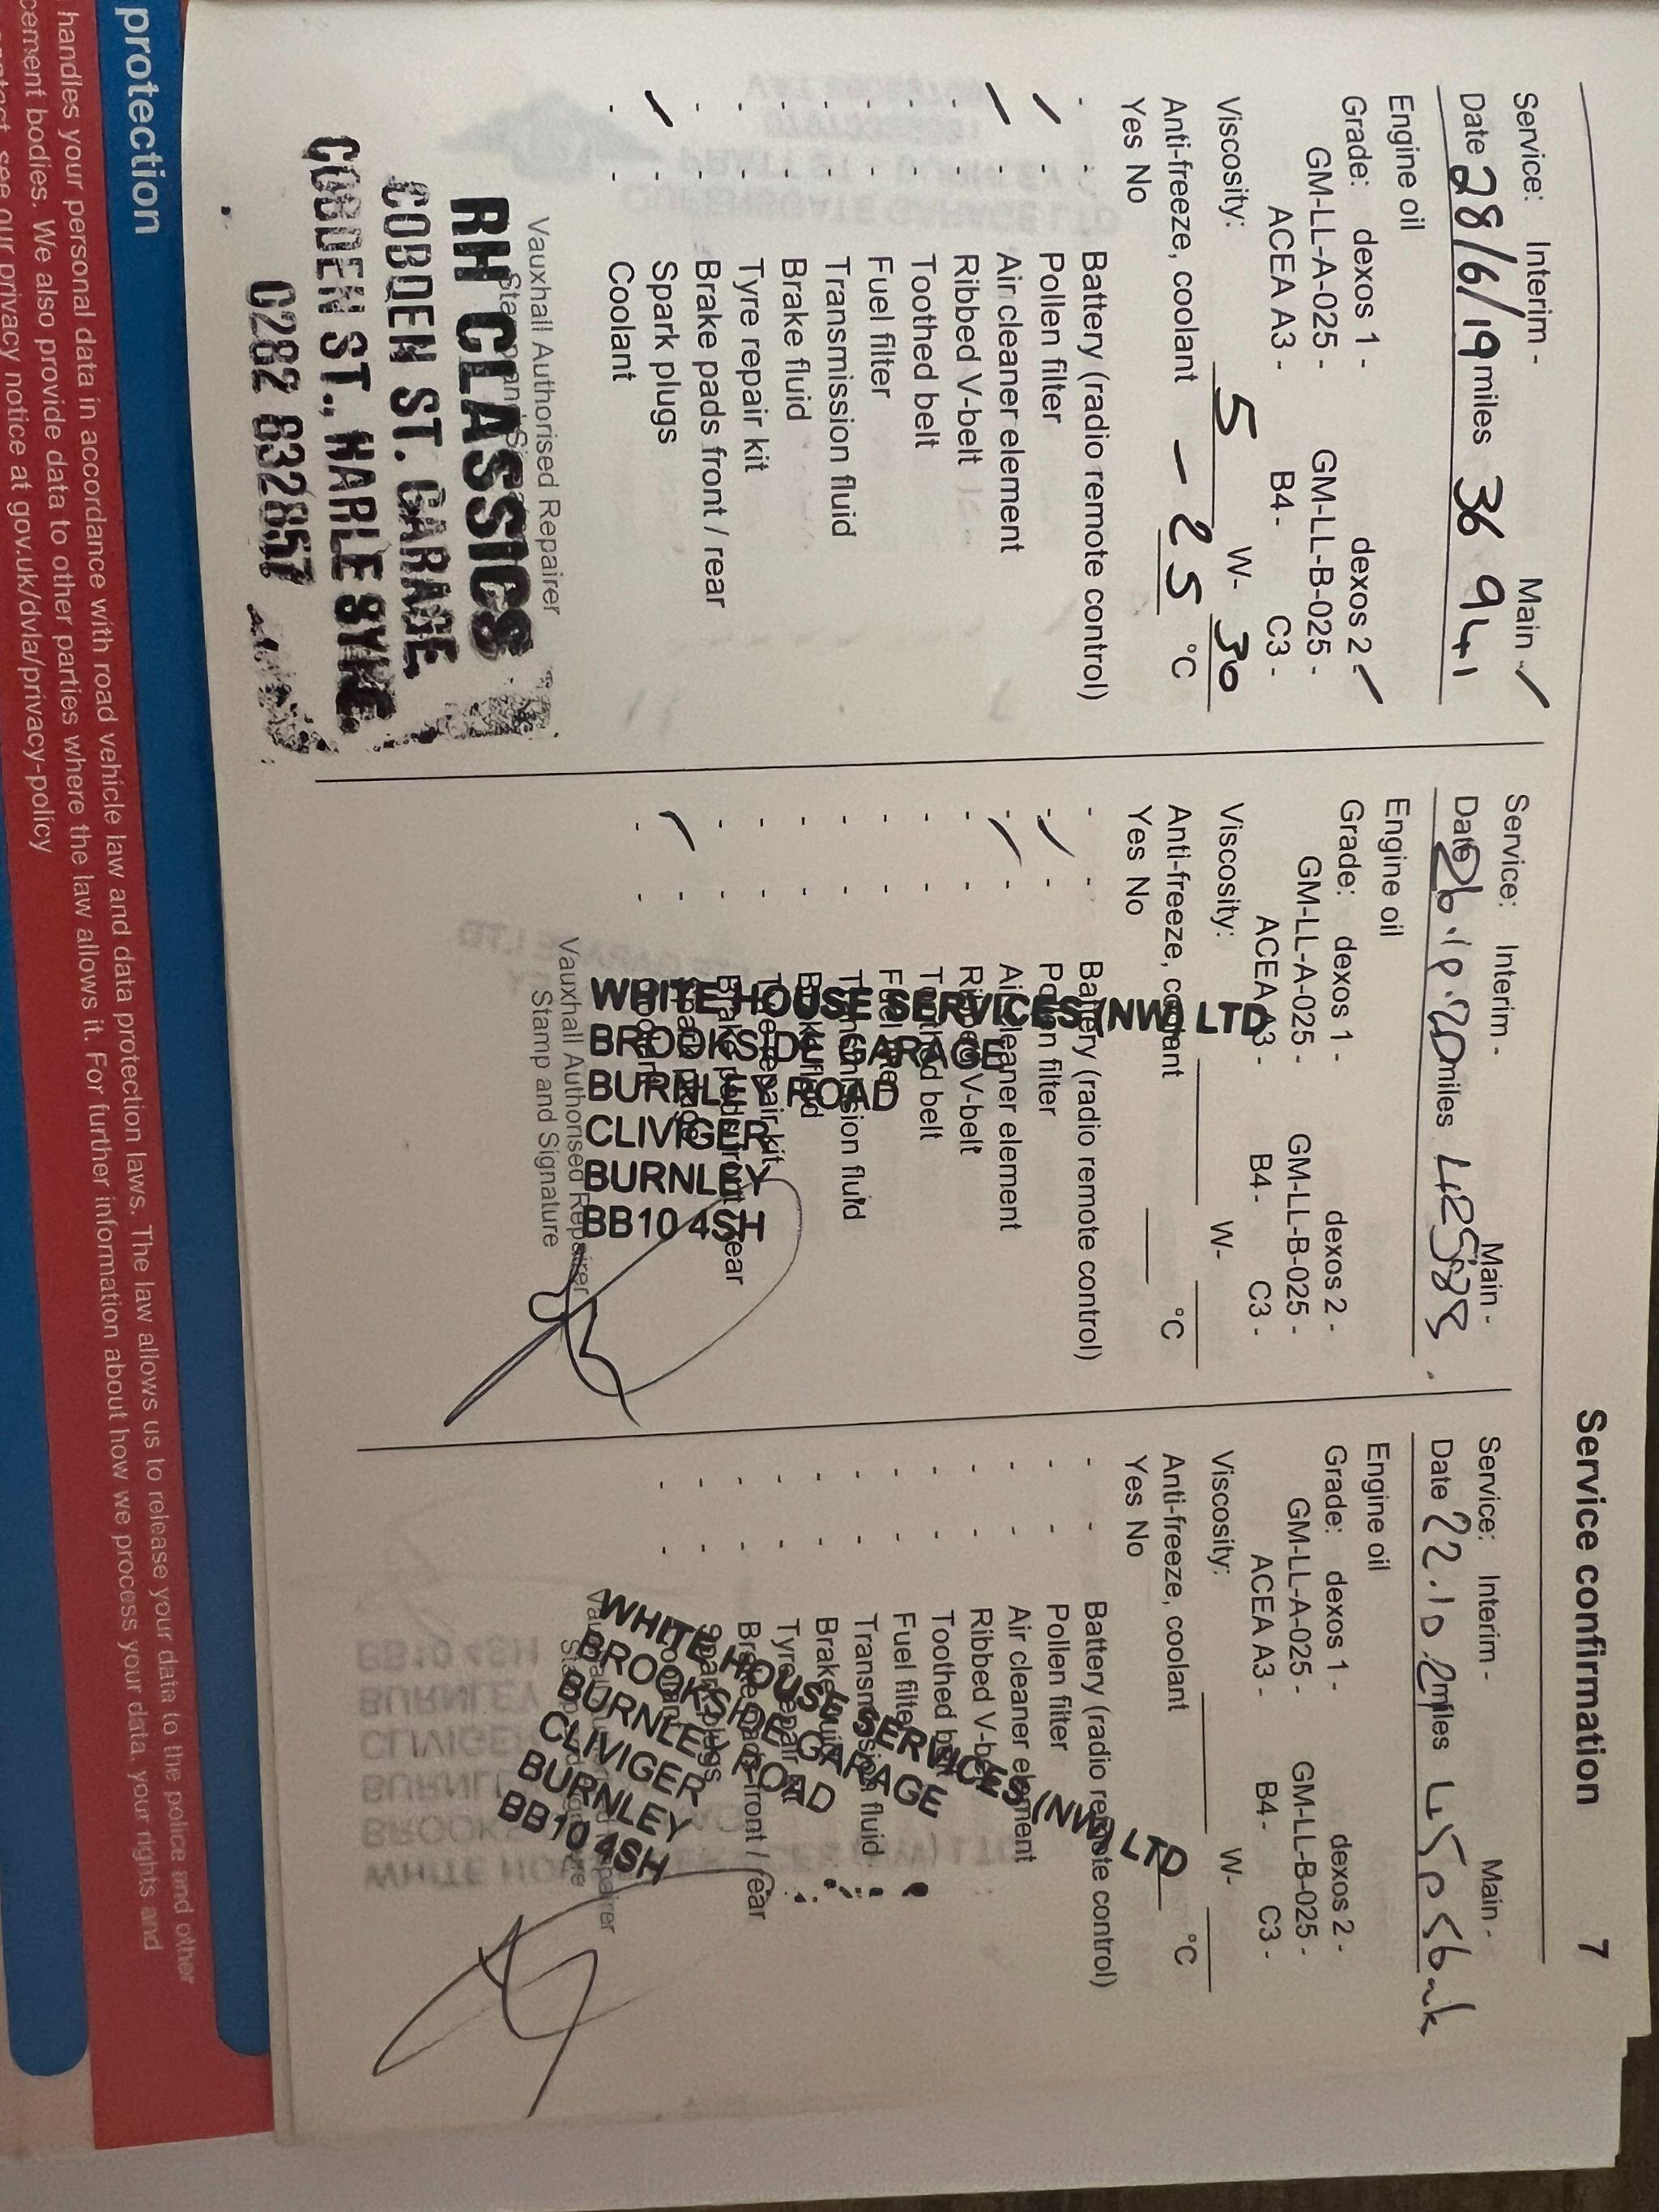 Service confirmation 7
Service: Interim - Main -
Date 28/6/19 miles 36 941
Engine oil
Grade: dexos 1 - dexos 2 -
GM-LL-A-025 - GM-LL-B-025 -
ACEA A3 - B4 - C3 -
Viscosity: 5 W- 30
Anti-freeze, coolant - 25 °C
Yes No
- - Battery (radio remote control)
- Pollen filter
- Air cleaner element
- - Ribbed V-belt
- - Toothed belt
- - Fuel filter
- - Transmission fluid
- - Brake fluid
- - Tyre repair kit
- - Brake pads front / rear
- Spark plugs
- - Coolant
Vauxhall Authorised Repairer
RH CLASSICS
COBDEN ST. GARAGE
COBDEN ST., HARLE SYKE
0282 832857
Service: Interim - Main -
Date miles
Engine oil
Grade: dexos 1 - dexos 2 -
GM-LL-A-025 - GM-LL-B-025 -
ACEA A3 - B4 - C3 -
Viscosity: W-
Anti-freeze, coolant °C
Yes No
- - Battery (radio remote control)
- Pollen filter
- Air cleaner element
- - Ribbed V-belt
- - Toothed belt
- - Fuel filter
- - Transmission fluid
- - Brake fluid
- - Tyre repair kit
- - Brake pads front / rear
- Spark plugs
- - Coolant
Vauxhall Authorised Repairer
Stamp and Signature
WHITE HOUSE SERVICES (NW) LTD
BROOKSIDE GARAGE
BURNLEY ROAD
CLIVIGER
BURNLEY
BB10 4SH
Service: Interim - Main -
Date 22.10.2 miles
Engine oil
Grade: dexos 1 - dexos 2 -
GM-LL-A-025 - GM-LL-B-025 -
ACEA A3 - B4 - C3 -
Viscosity: W-
Anti-freeze, coolant °C
Yes No
- - Battery (radio remote control)
- - Pollen filter
- - Air cleaner element
- - Ribbed V-belt
- - Toothed belt
- - Fuel filter
- - Transmission fluid
- - Brake fluid
- - Tyre repair kit
- - Brake pads front / rear
- - Spark plugs
- - Coolant
WHITE HOUSE SERVICES (NW) LTD
BROOKSIDE GARAGE
BURNLEY ROAD
CLIVIGER
BURNLEY
BB10 4SH
protection
handles your personal data in accordance with road vehicle law and data protection laws. The law allows us to release your data to the police and other
cement bodies. We also provide data to other parties where the law allows it. For further information about how we process your data, your rights and
see our privacy notice at gov.uk/dvla/privacy-policy